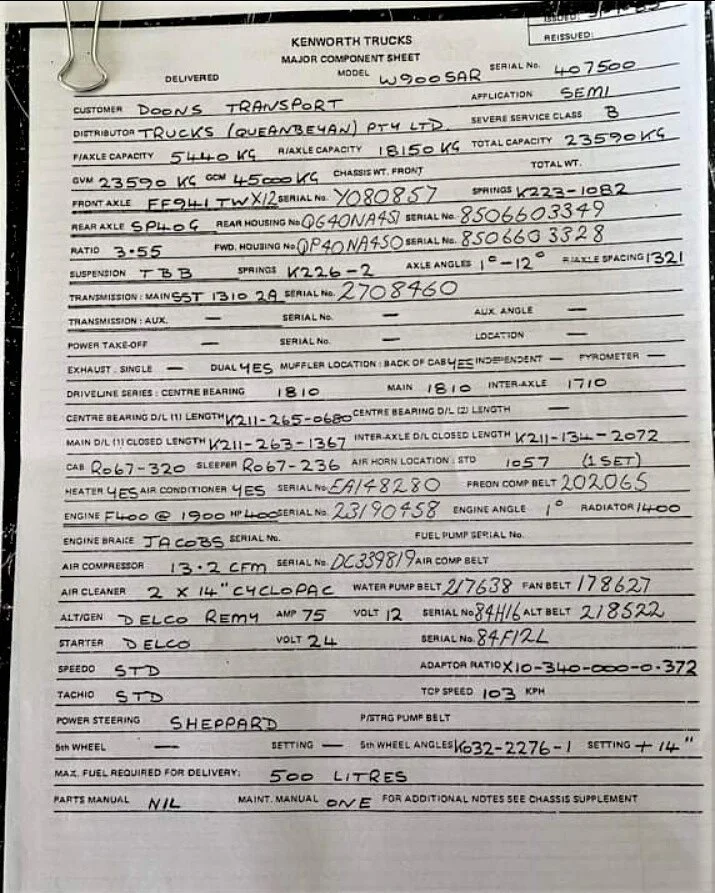 ISSUED:
REISSUED:
KENWORTH TRUCKS
MAJOR COMPONENT SHEET
DELIVERED MODEL W900SAR SERIAL No. 407500
CUSTOMER DOONS TRANSPORT APPLICATION SEMI
DISTRIBUTOR TRUCKS (QUEANBEYAN) PTY LTD. SEVERE SERVICE CLASS B
F/AXLE CAPACITY 5440 KG R/AXLE CAPACITY 18150 KG TOTAL CAPACITY 23590 KG
GVM 23590 KG GCM 45000 KG CHASSIS WT. FRONT TOTAL WT.
FRONT AXLE FF941 TWX12 SERIAL No. Y080857 SPRINGS K223-1082
REAR AXLE SP40G REAR HOUSING No QG40NA451 SERIAL No. 8506603349
RATIO 3.55 FWD. HOUSING No QP40NA450 SERIAL No. 8506603328
SUSPENSION TBB SPRINGS K226-2 AXLE ANGLES 1°-12° R/AXLE SPACING 1321
TRANSMISSION: MAIN SST 1310 2A SERIAL No. 2708460
TRANSMISSION: AUX. — SERIAL No. — AUX. ANGLE —
POWER TAKE-OFF — SERIAL No. — LOCATION —
EXHAUST. SINGLE — DUAL YES MUFFLER LOCATION: BACK OF CAB YES INDEPENDENT — PYROMETER —
DRIVELINE SERIES: CENTRE BEARING 1810 MAIN 1810 INTER-AXLE 1710
CENTRE BEARING D/L (1) LENGTH K211-265-0680 CENTRE BEARING D/L (2) LENGTH —
MAIN D/L (1) CLOSED LENGTH K211-263-1367 INTER-AXLE D/L CLOSED LENGTH K211-134-2072
CAB R067-320 SLEEPER R067-236 AIR HORN LOCATION: STD 1057 (1 SET)
HEATER YES AIR CONDITIONER YES SERIAL No. EA148280 FREON COMP BELT 202065
ENGINE F400 @ 1900 HP 400 SERIAL No. 23190458 ENGINE ANGLE 1° RADIATOR 1400
ENGINE BRAKE JACOBS SERIAL No. FUEL PUMP SERIAL No.
AIR COMPRESSOR 13.2 CFM SERIAL No. DC339819 AIR COMP BELT
AIR CLEANER 2 X 14" CYCLOPAC WATER PUMP BELT 217638 FAN BELT 178627
ALT/GEN DELCO REMY AMP 75 VOLT 12 SERIAL No 84H16 ALT BELT 218522
STARTER DELCO VOLT 24 SERIAL No. 84F12L
SPEEDO STD ADAPTOR RATIO X10-340-000-0.372
TACHO STD TOP SPEED 103 KPH
POWER STEERING SHEPPARD P/STRG PUMP BELT
5th WHEEL — SETTING — 5th WHEEL ANGLES K632-2276-1 SETTING + 14"
MAX. FUEL REQUIRED FOR DELIVERY: 500 LITRES
PARTS MANUAL NIL MAINT. MANUAL ONE FOR ADDITIONAL NOTES SEE CHASSIS SUPPLEMENT